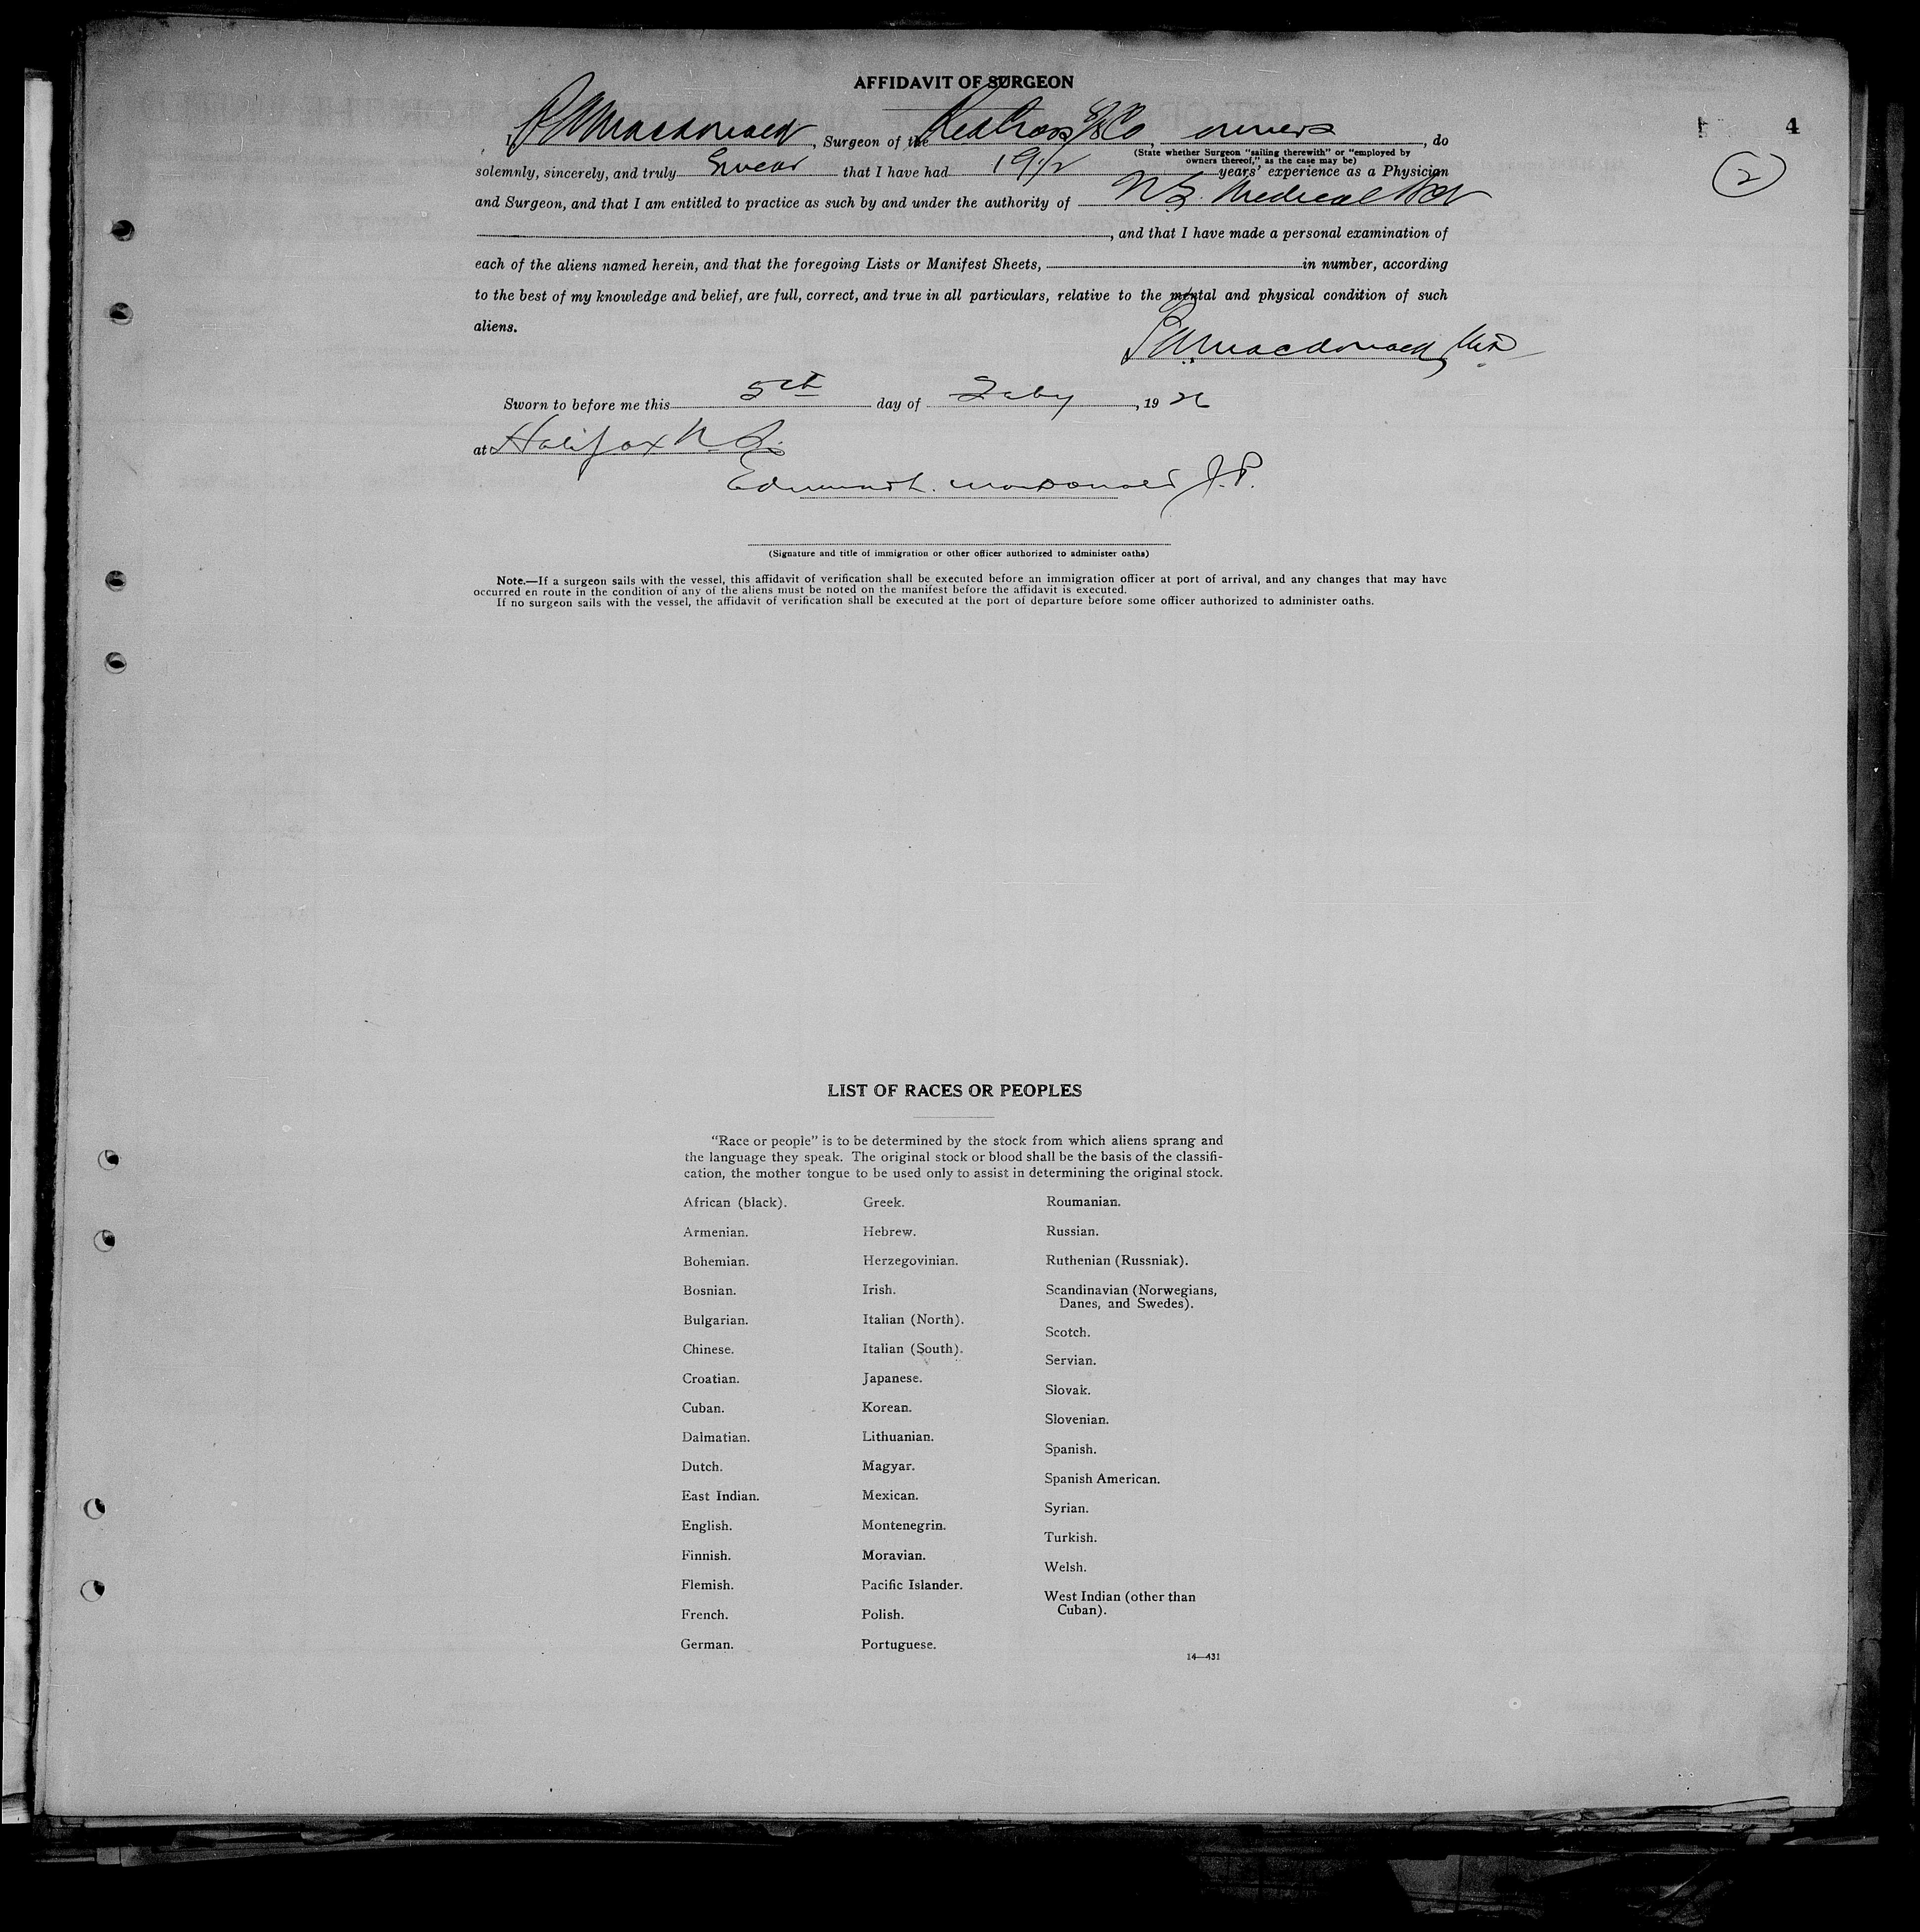 AFFIDAVIT OF SURGEON
4
2
I, Macdonald, Surgeon of the Red Cross SS Co, owners, do
(State whether Surgeon "sailing therewith" or "employed by
owners thereof," as the case may be)
solemnly, sincerely, and truly Swear that I have had 19 1/2 years' experience as a Physician
and Surgeon, and that I am entitled to practice as such by and under the authority of N.S. Medical
, and that I have made a personal examination of
each of the aliens named herein, and that the foregoing Lists or Manifest Sheets, in number, according
to the best of my knowledge and belief, are full, correct, and true in all particulars, relative to the mental and physical condition of such
aliens.
Macdonald, MD
Sworn to before me this 5th day of Feby, 1926
at Halifax N.S.
Macdonald J.P.
(Signature and title of immigration or other officer authorized to administer oaths)
Note.—If a surgeon sails with the vessel, this affidavit of verification shall be executed before an immigration officer at port of arrival, and any changes that may have
occurred en route in the condition of any of the aliens must be noted on the manifest before the affidavit is executed.
If no surgeon sails with the vessel, the affidavit of verification shall be executed at the port of departure before some officer authorized to administer oaths.
LIST OF RACES OR PEOPLES
"Race or people" is to be determined by the stock from which aliens sprang and
the language they speak. The original stock or blood shall be the basis of the classifi-
cation, the mother tongue to be used only to assist in determining the original stock.
African (black).
Armenian.
Bohemian.
Bosnian.
Bulgarian.
Chinese.
Croatian.
Cuban.
Dalmatian.
Dutch.
East Indian.
English.
Finnish.
Flemish.
French.
German.
Greek.
Hebrew.
Herzegovinian.
Irish.
Italian (North).
Italian (South).
Japanese.
Korean.
Lithuanian.
Magyar.
Mexican.
Montenegrin.
Moravian.
Pacific Islander.
Polish.
Portuguese.
Roumanian.
Russian.
Ruthenian (Russniak).
Scandinavian (Norwegians,
Danes, and Swedes).
Scotch.
Servian.
Slovak.
Slovenian.
Spanish.
Spanish American.
Syrian.
Turkish.
Welsh.
West Indian (other than
Cuban).
14—431